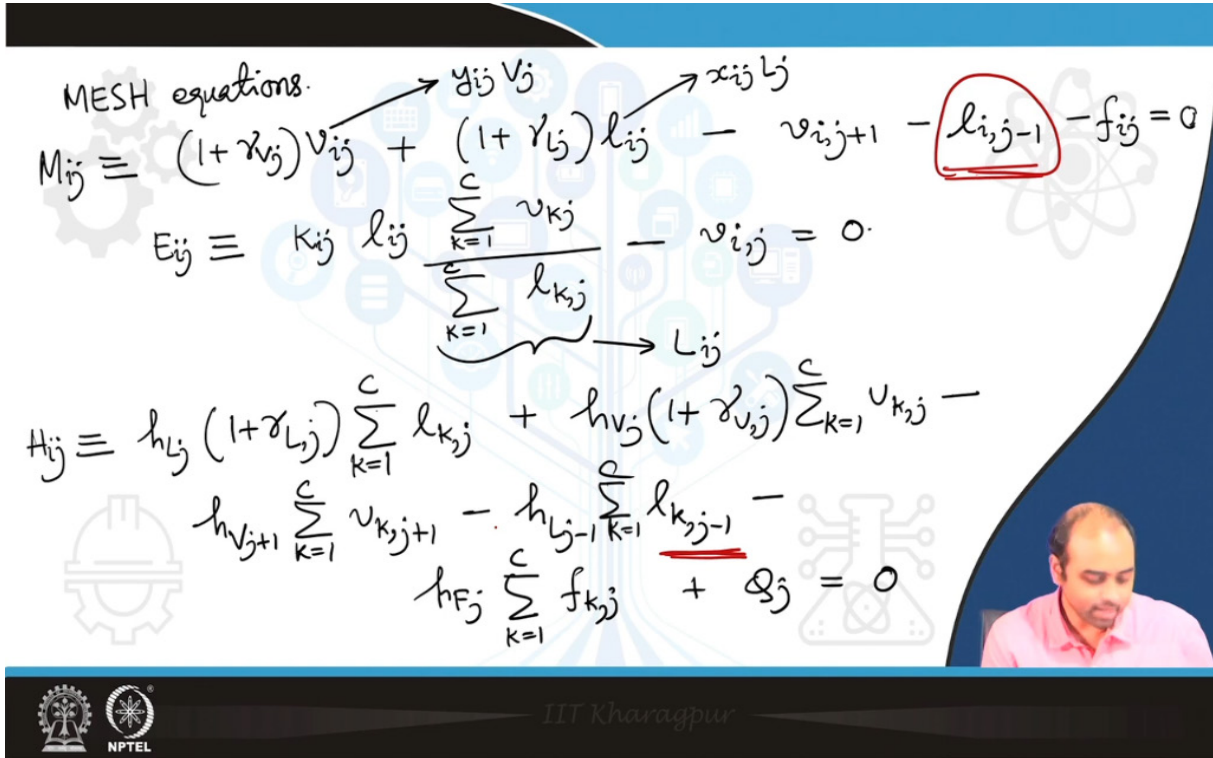 MESH equations. → yij Vj → xij Lj
Mij ≡ (1+ γVj) Vij + (1+ γLj) lij − vi,j+1 − li,j−1 − fij = 0
Eij ≡ Kij lij (∑_{k=1}^{C} vKj / ∑_{k=1}^{C} lk,j) − vi,j = 0.
→ Lij
Hij ≡ hLj (1+γL,j) ∑_{k=1}^{C} lk,j + hVj (1+γV,j) ∑_{k=1}^{C} vk,j −
hVj+1 ∑_{k=1}^{C} vk,j+1 − hLj−1 ∑_{k=1}^{C} lk,j−1 −
hFj ∑_{k=1}^{C} fk,j + Qj = 0
IIT Kharagpur
NPTEL